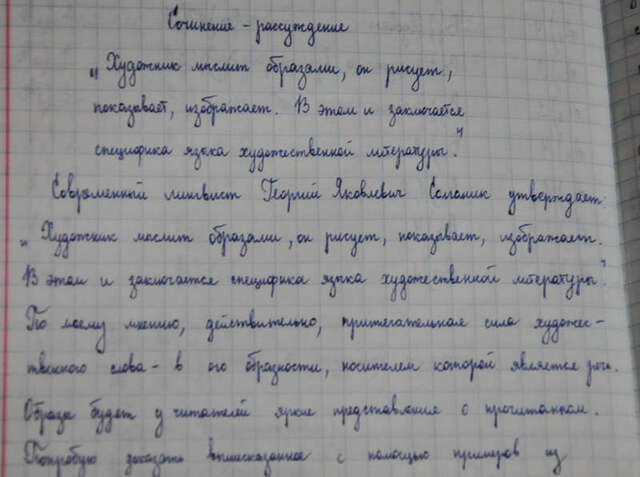 Сочинение - рассуждение
"Художник мыслит образами, он рисует,
показывает, изображает. В этом и заключается
специфика языка художественной литературы."
Современный лингвист Георгий Яковлевич Солганик утверждает:
"Художник мыслит образами, он рисует, показывает, изображает.
В этом и заключается специфика языка художественной литературы."
По моему мнению, действительно, притягательная сила художес-
твенного слова - в его образности, носителем которой является речь.
Образы будят у читателей яркие представления о прочитанном.
Попробую доказать вышесказанное с помощью примеров из